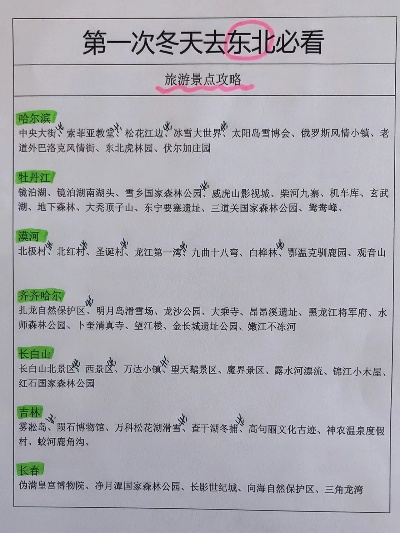 第一次冬天去东北必看
旅游景点攻略
哈尔滨
中央大街、索菲亚教堂、松花江边、冰雪大世界、太阳岛雪博会、俄罗斯风情小镇、老
道外巴洛克风情街、东北虎林园、伏尔加庄园
牡丹江
镜泊湖、镜泊湖南湖头、雪乡国家森林公园、威虎山影视城、柴河九寨、机车库、玄武
湖、地下森林、大秃顶子山、东宁要塞遗址、三道关国家森林公园、鸳鸯峰、
漠河
北极村、北红村、圣诞村、龙江第一湾、九曲十八弯、白桦林、鄂温克驯鹿园、观音山
齐齐哈尔
扎龙自然保护区、明月岛滑雪场、龙沙公园、大乘寺、昂昂溪遗址、黑龙江将军府、水
师森林公园、卜奎清真寺、望江楼、金长城遗址公园、嫩江不冻河
长白山
长白山北景区、西景区、万达小镇、望天鹅景区、魔界景区、露水河漂流、锦江小木屋、
红石国家森林公园
吉林
雾凇岛、陨石博物馆、万科松花湖滑雪、查干湖冬捕、高句丽文化古迹、神农温泉度假
村、蛟河鹿角沟、
长春
伪满皇宫博物院、净月潭国家森林公园、长影世纪城、向海自然保护区、三角龙湾